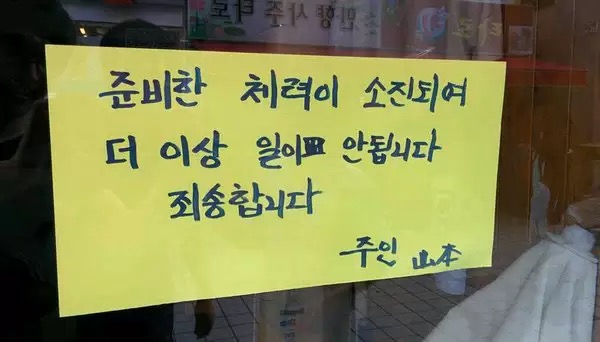 사주타로
타로
준비한 체력이 소진되여
더 이상 일이 안됩니다
죄송합니다
주인 山本